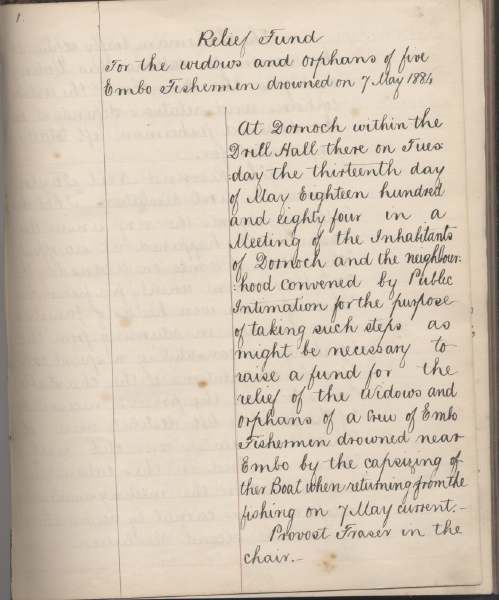 1.
Relief Fund
For the widows and orphans of five
Embo Fishermen drowned on 7 May 1884
At Dornoch within the
Drill Hall there on Tues:
day the thirteenth day
of May Eighteen hundred
and eighty four in a
Meeting of the Inhabitants
of Dornoch and the neighbour:
:hood convened by Public
Intimation for the purpose
of taking such steps as
might be necessary to
raise a fund for the
relief of the widows and
orphans of a Crew of Embo
Fishermen drowned near
Embo by the capsizing of
their Boat when returning from the
fishing on 7 May current.–
Provost Fraser in the
chair.–